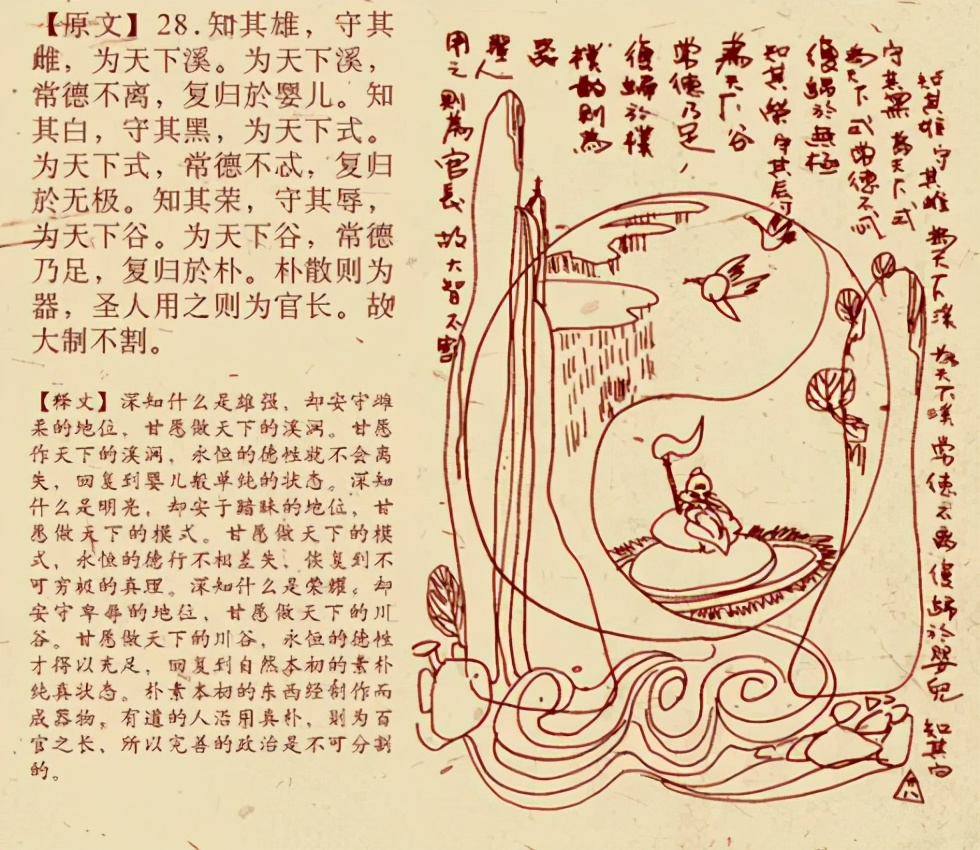 【原文】28.知其雄，守其
雌，为天下溪。为天下溪，
常德不离，复归於婴儿。知
其白，守其黑，为天下式。
为天下式，常德不忒，复归
於无极。知其荣，守其辱，
为天下谷。为天下谷，常德
乃足，复归於朴。朴散则为
器，圣人用之则为官长。故
大制不割。
【释文】深知什么是雄强，却安守雌
柔的地位，甘愿做天下的溪涧。甘愿
作天下的溪涧，永恒的德性就不会离
失，回复到婴儿般单纯的状态。深知
什么是明亮，却安于暗昧的地位，甘
愿做天下的模式。甘愿做天下的模
式，永恒的德行不相差失，恢复到不
可穷极的真理。深知什么是荣耀，却
安守卑辱的地位，甘愿做天下的川
谷。甘愿做天下的川谷，永恒的德性
才得以充足，回复到自然本初的素朴
纯真状态。朴素本初的东西经制作而
成器物，有道的人沿用真朴，则为百
官之长，所以完善的政治是不可分割
的。
知其雄守其雌為天下溪為天下溪常德不離復歸於嬰兒知其白
守其黑為天下式
為天下式常德不忒
復歸於無極
知其榮守其辱
為天下谷
常德乃足，
復歸於樸
樸散則為
器
聖人
用之則為官長故大智不割